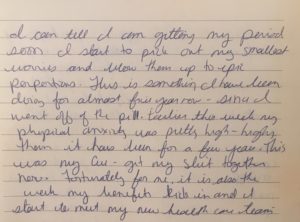 I can tell I am getting my period
soon I start to pick out my smallest
worries and blow them up to epic
porportions. This is something I have been
doing for almost four years now - since I
went off of the pill. Earlier this week my
physical anxiety was pretty high - higher
then it have been for a few years. This
was my cue - get my shit together
now. Fortunately for me, it is also the
week my benefits kick in and I
start to meet my new health care team.